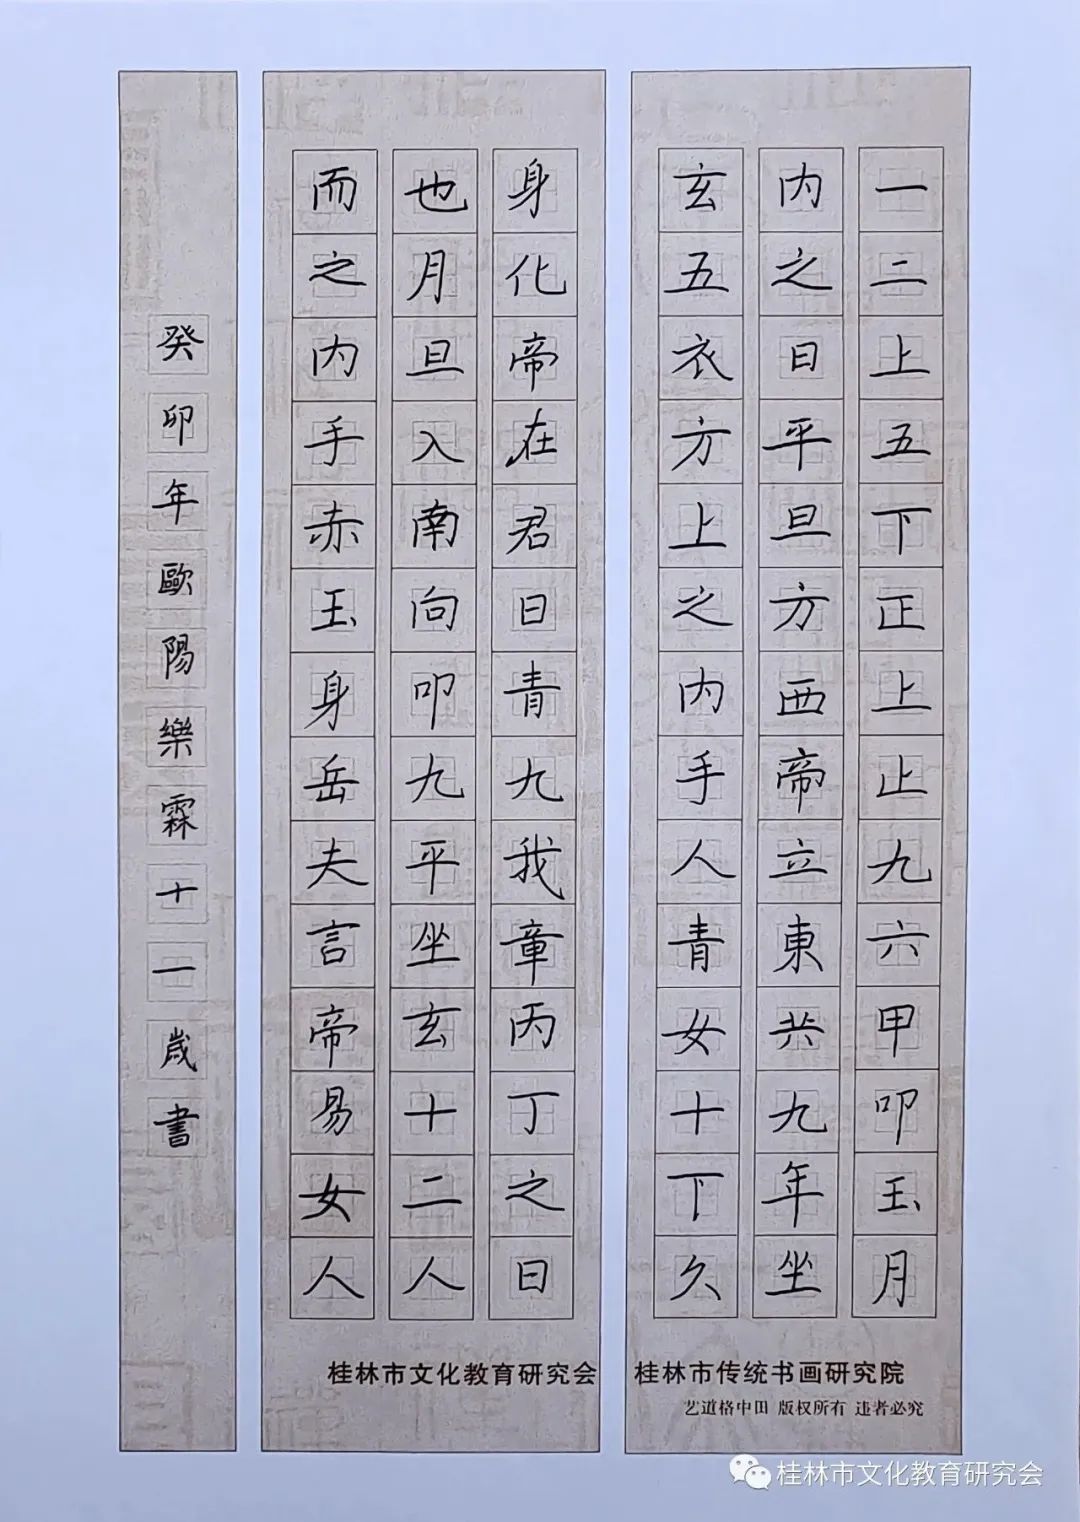 一二上五下正上止九六甲叩玉月
内之日平旦方西帝立東共九年坐
玄五衣方上之内手人青女十下久
身化帝在君日青九我章丙丁之日
也月旦入南向叩九平坐玄十二人
而之内手赤玉身岳夫言帝易女人
癸卯年歐陽樂霖十一歲書
桂林市文化教育研究会 桂林市传统书画研究院
艺道格中田 版权所有 违者必究
桂林市文化教育研究会